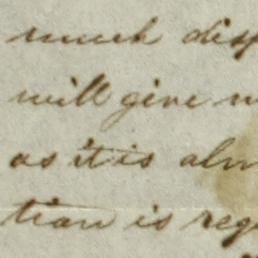 much disp
will give n
as it is alm
tian is reg